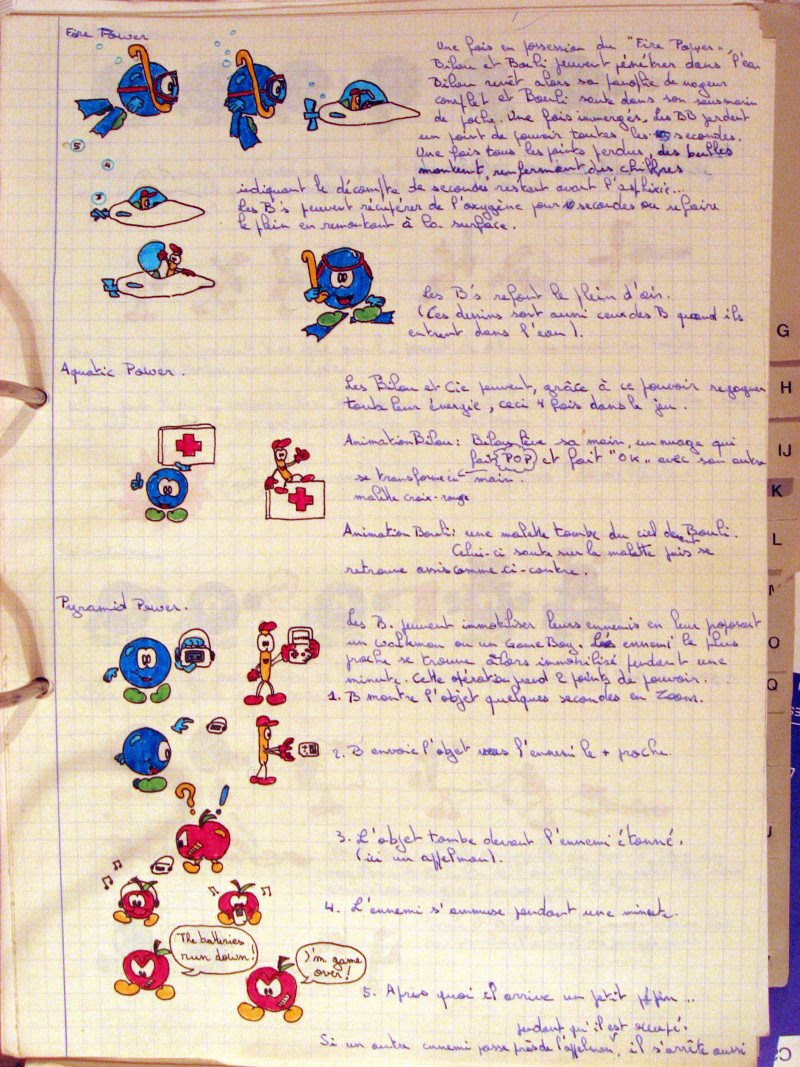 Fire Power
Une fois en possession du "Fire Power",
Bilou et Bouli peuvent pénétrer dans l'eau
Bilou revêt alors sa panoplie de nageur
complet et Bouli saute dans son sousmarin
de poche. Une fois immergés, les BB perdent
un point de pouvoir toutes les secondes.
Une fois tous les points perdus, des bulles
montent, renfermant des chiffres
indiquant le décompte de secondes restant avant l'asphixie...
Les B's peuvent récupérer de l'oxygène pour secondes ou refaire
le plein en remontant à la surface.
5
4
3
Les B's refont le plein d'air.
(Ces dessins sont aussi ceux des B quand ils
entrent dans l'eau).
Aquatic Power.
Les Bilou et Cie peuvent, grâce à ce pouvoir regagner
toute leur énergie, ceci 4 fois dans le jeu.
Animation Bilou: Bilou lève sa main, un nuage qui
fait POP et fait "OK" avec son autre
se transforme en main.
malette croix-rouge
Animation Bouli: une malette tombe du ciel devant Bouli.
Celui-ci saute sur la malette puis se
retrouve assis comme ci-contre.
Pyramid Power.
Les B. peuvent immobiliser leurs ennemis en leur proposant
un walkman ou un GameBoy. ennemi le plus
proche se trouve alors immobilisé pendant une
minute. Cette opération prend 2 points de pouvoir.
1. B montre l'objet quelques secondes en Zoom.
2. B envoie l'objet vers l'ennemi le + proche.
? !
3. L'objet tombe devant l'ennemi étonné.
(ici un appelman).
4. L'ennemi s'ammuse pendant une minute.
The batteries
run down!
I'm game
over!
5. Après quoi il arrive un petit pépin...
pendant qu'il est occupé.
Si un autre ennemi passe près de l'appelman, il s'arrête aussi
G
H
IJ
K
L
O
Q